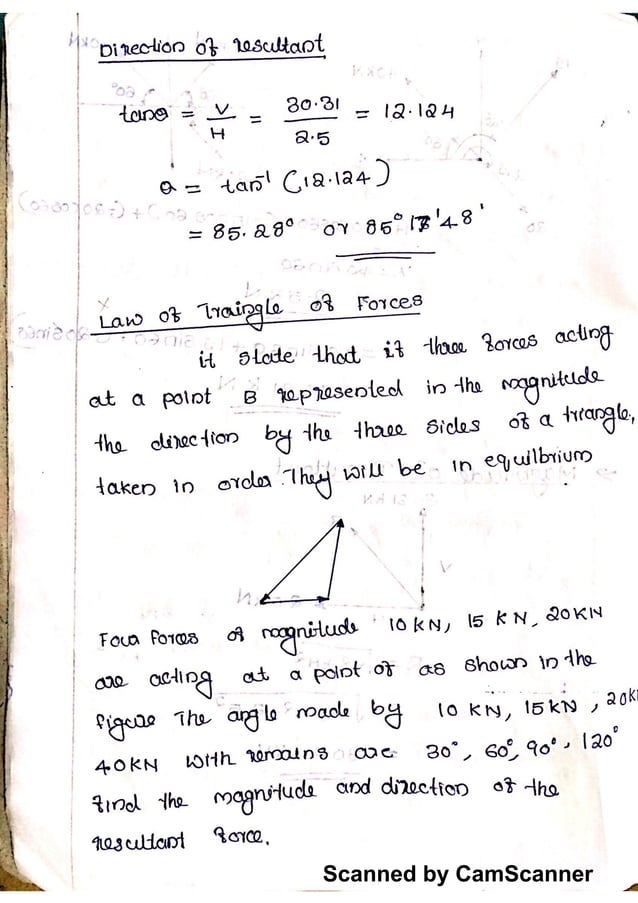 Direction of resultant
tanθ = V/H = 30.31/2.5 = 12.124
θ = tan⁻¹ (12.124)
= 85.28° or 85° 17' 48'
Law of Traingle of Forces
it state that if three forces acting
at a point B represented in the magnitude
the direction by the three sides of a triangle,
taken in order. They will be in equilbrium
Four forces of magnitude 10 KN, 15 KN, 20KN
are acting at a point of as shown in the
figure The angle made by 10 KN, 15KN, 20K
40KN with remains are 30°, 60°, 90°, 120°
find the magnitude and direction of the
resultant force.
Scanned by CamScanner